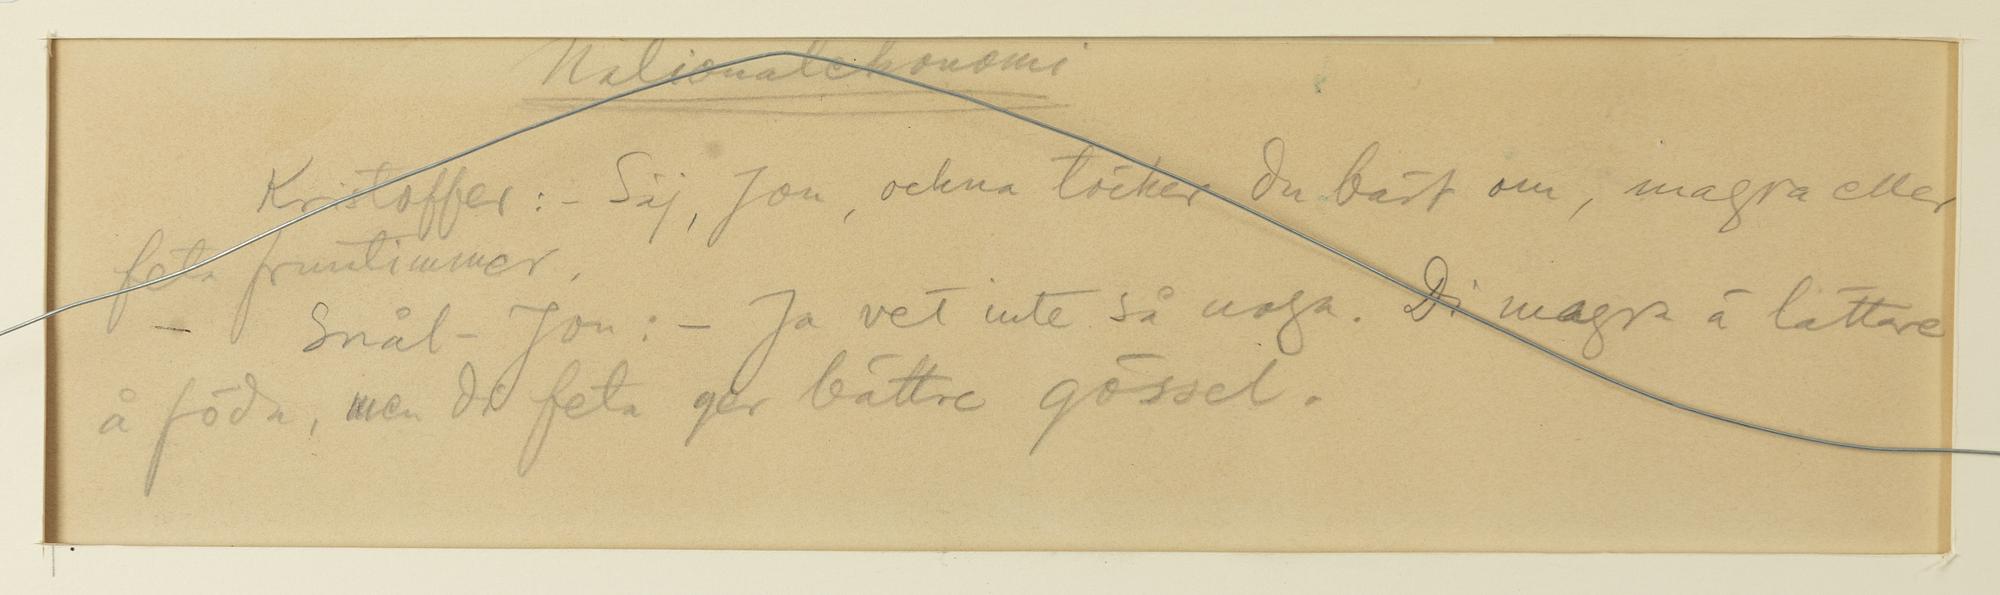 Nationalekonomi
Kristoffer: - Säj, Jon, ockna töcker du bäst om, magra eller
feta fruntimmer.
- Snål-Jon: - Ja vet inte så noga. Di magra ä lättare
å föda, men di feta ger bättre gössel.